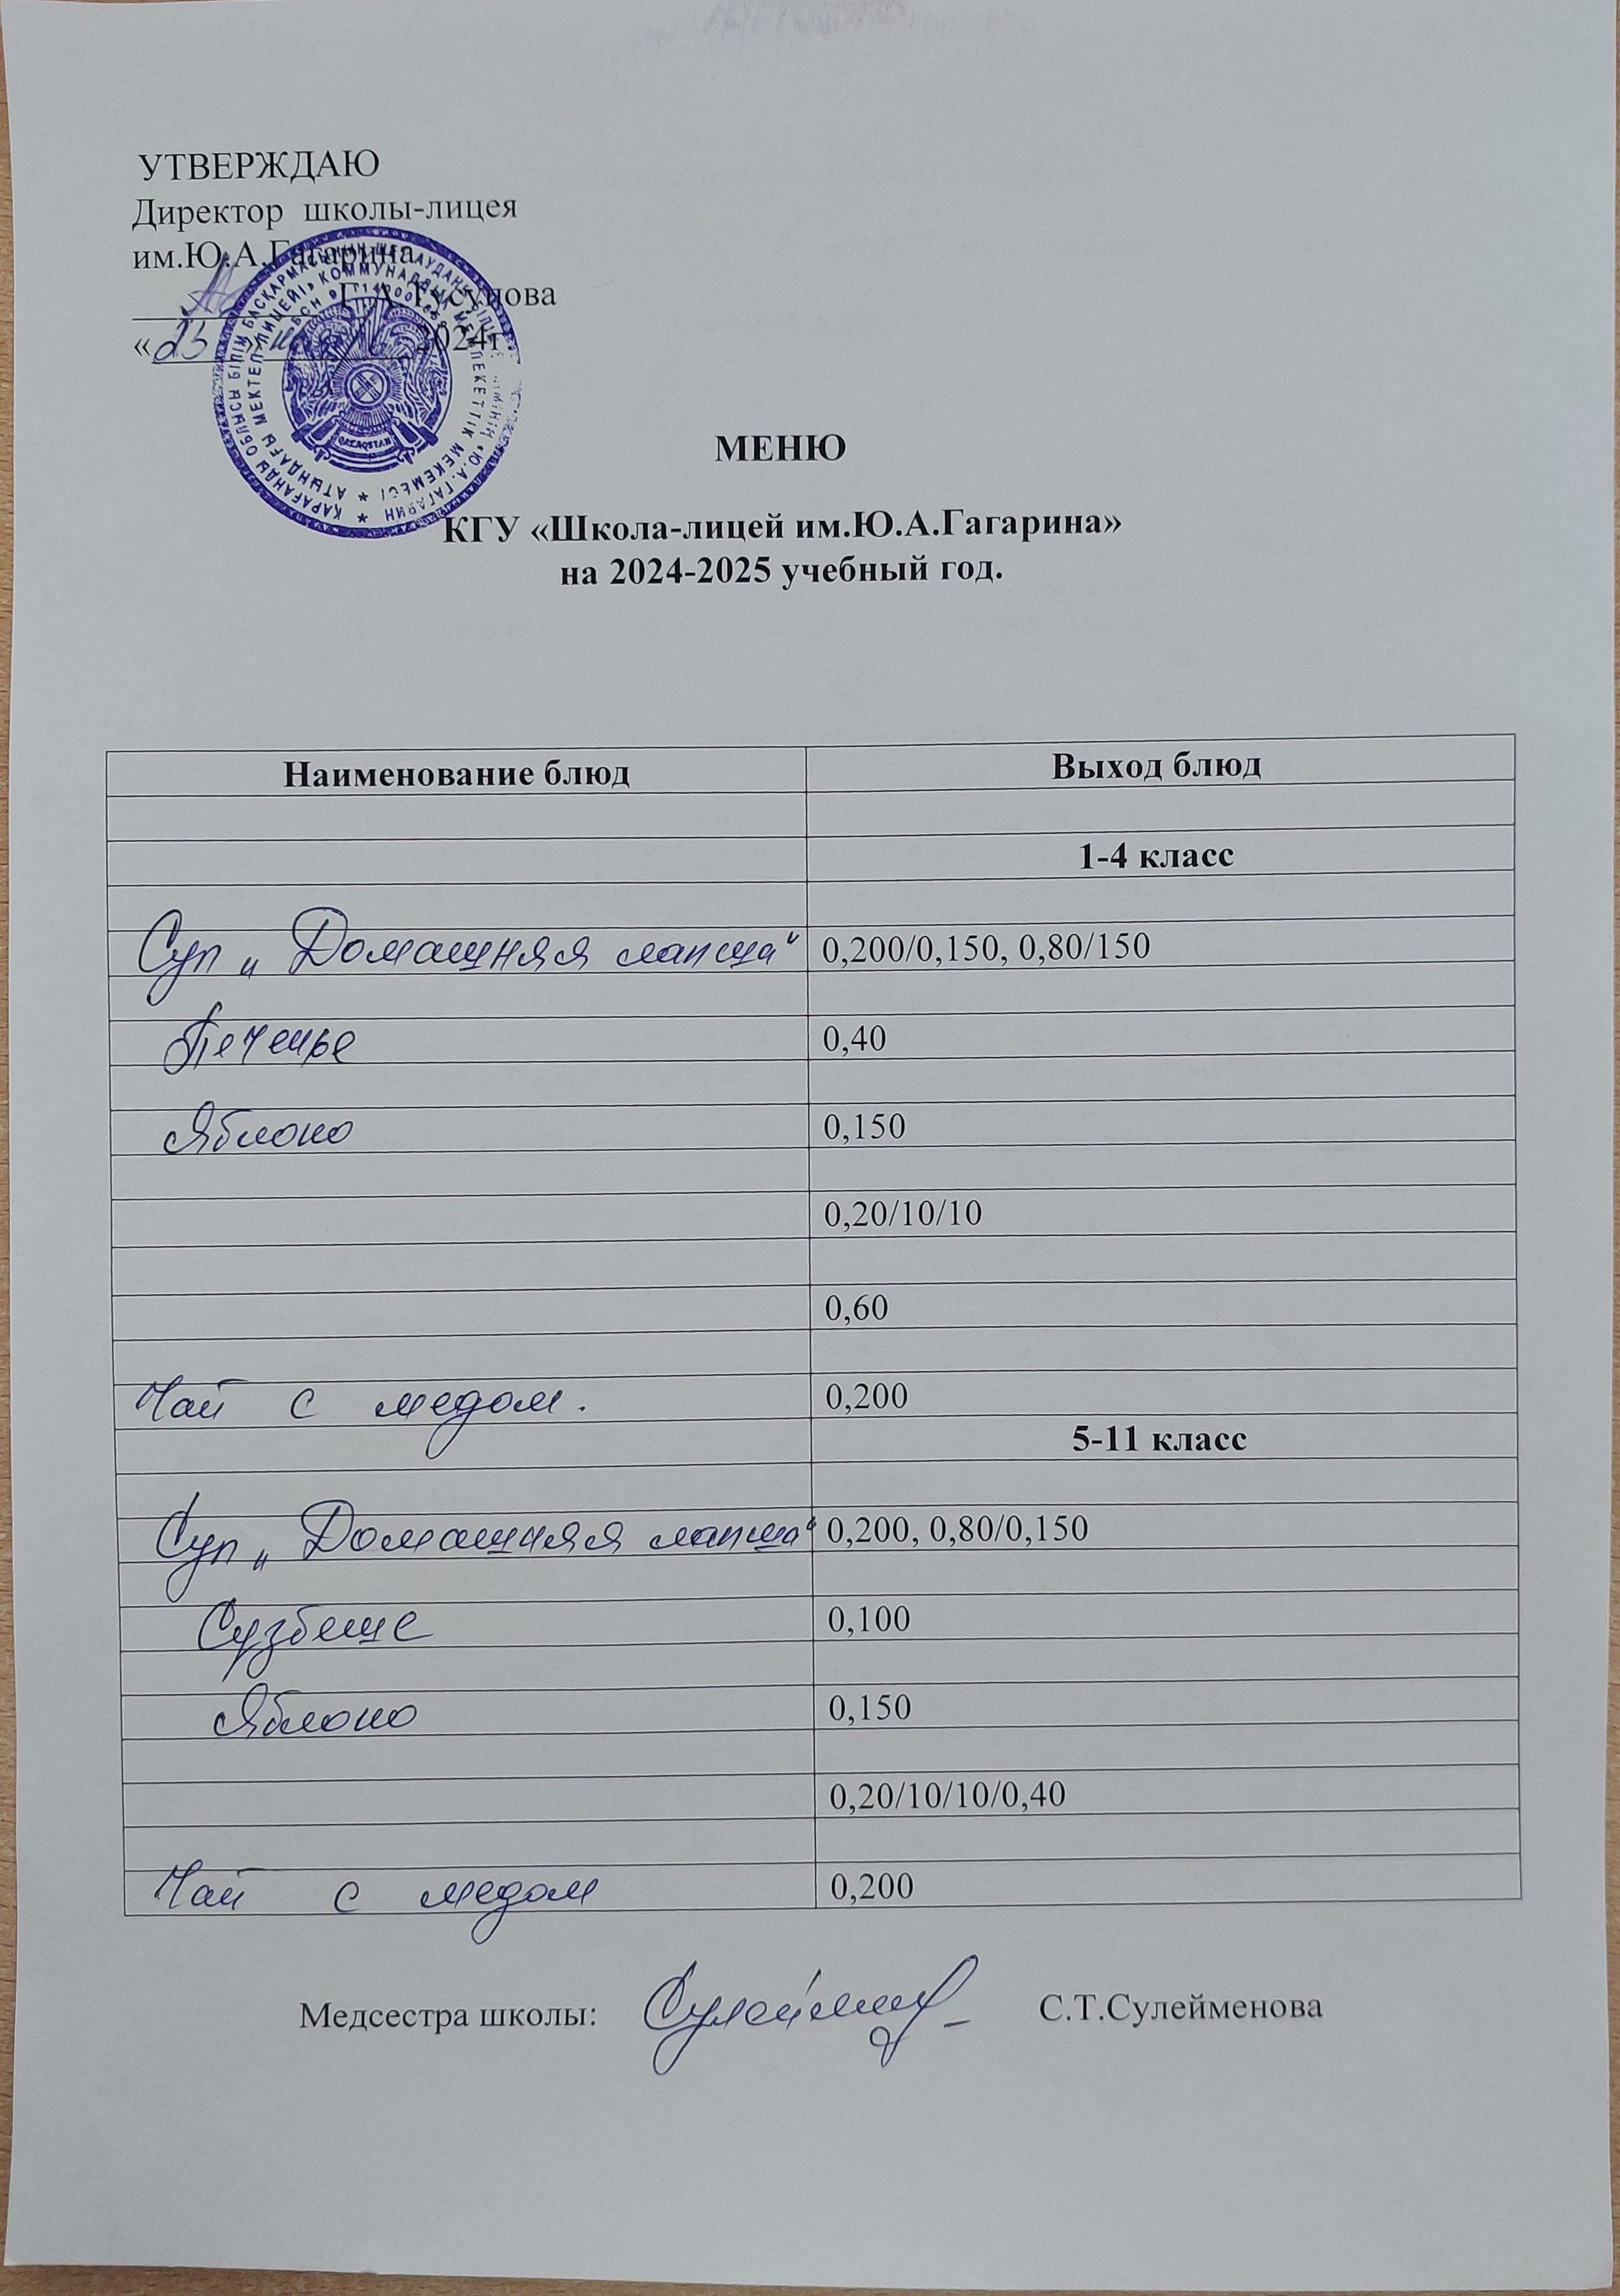 УТВЕРЖДАЮ
Директор школы-лицея
им.Ю.А.Гагарина
Г.А.Тусупова
«23» 2024г
МЕНЮ
КГУ «Школа-лицей им.Ю.А.Гагарина»
на 2024-2025 учебный год.
Наименование блюд Выход блюд
1-4 класс
Суп „Домашняя лапша“ 0,200/0,150, 0,80/150
Печенье 0,40
Яблоко 0,150
0,20/10/10
0,60
Чай с медом. 0,200
5-11 класс
Суп „Домашняя лапша“ 0,200, 0,80/0,150
Сузбеше 0,100
Яблоко 0,150
0,20/10/10/0,40
Чай с медом 0,200
Медсестра школы: С.Т.Сулейменова